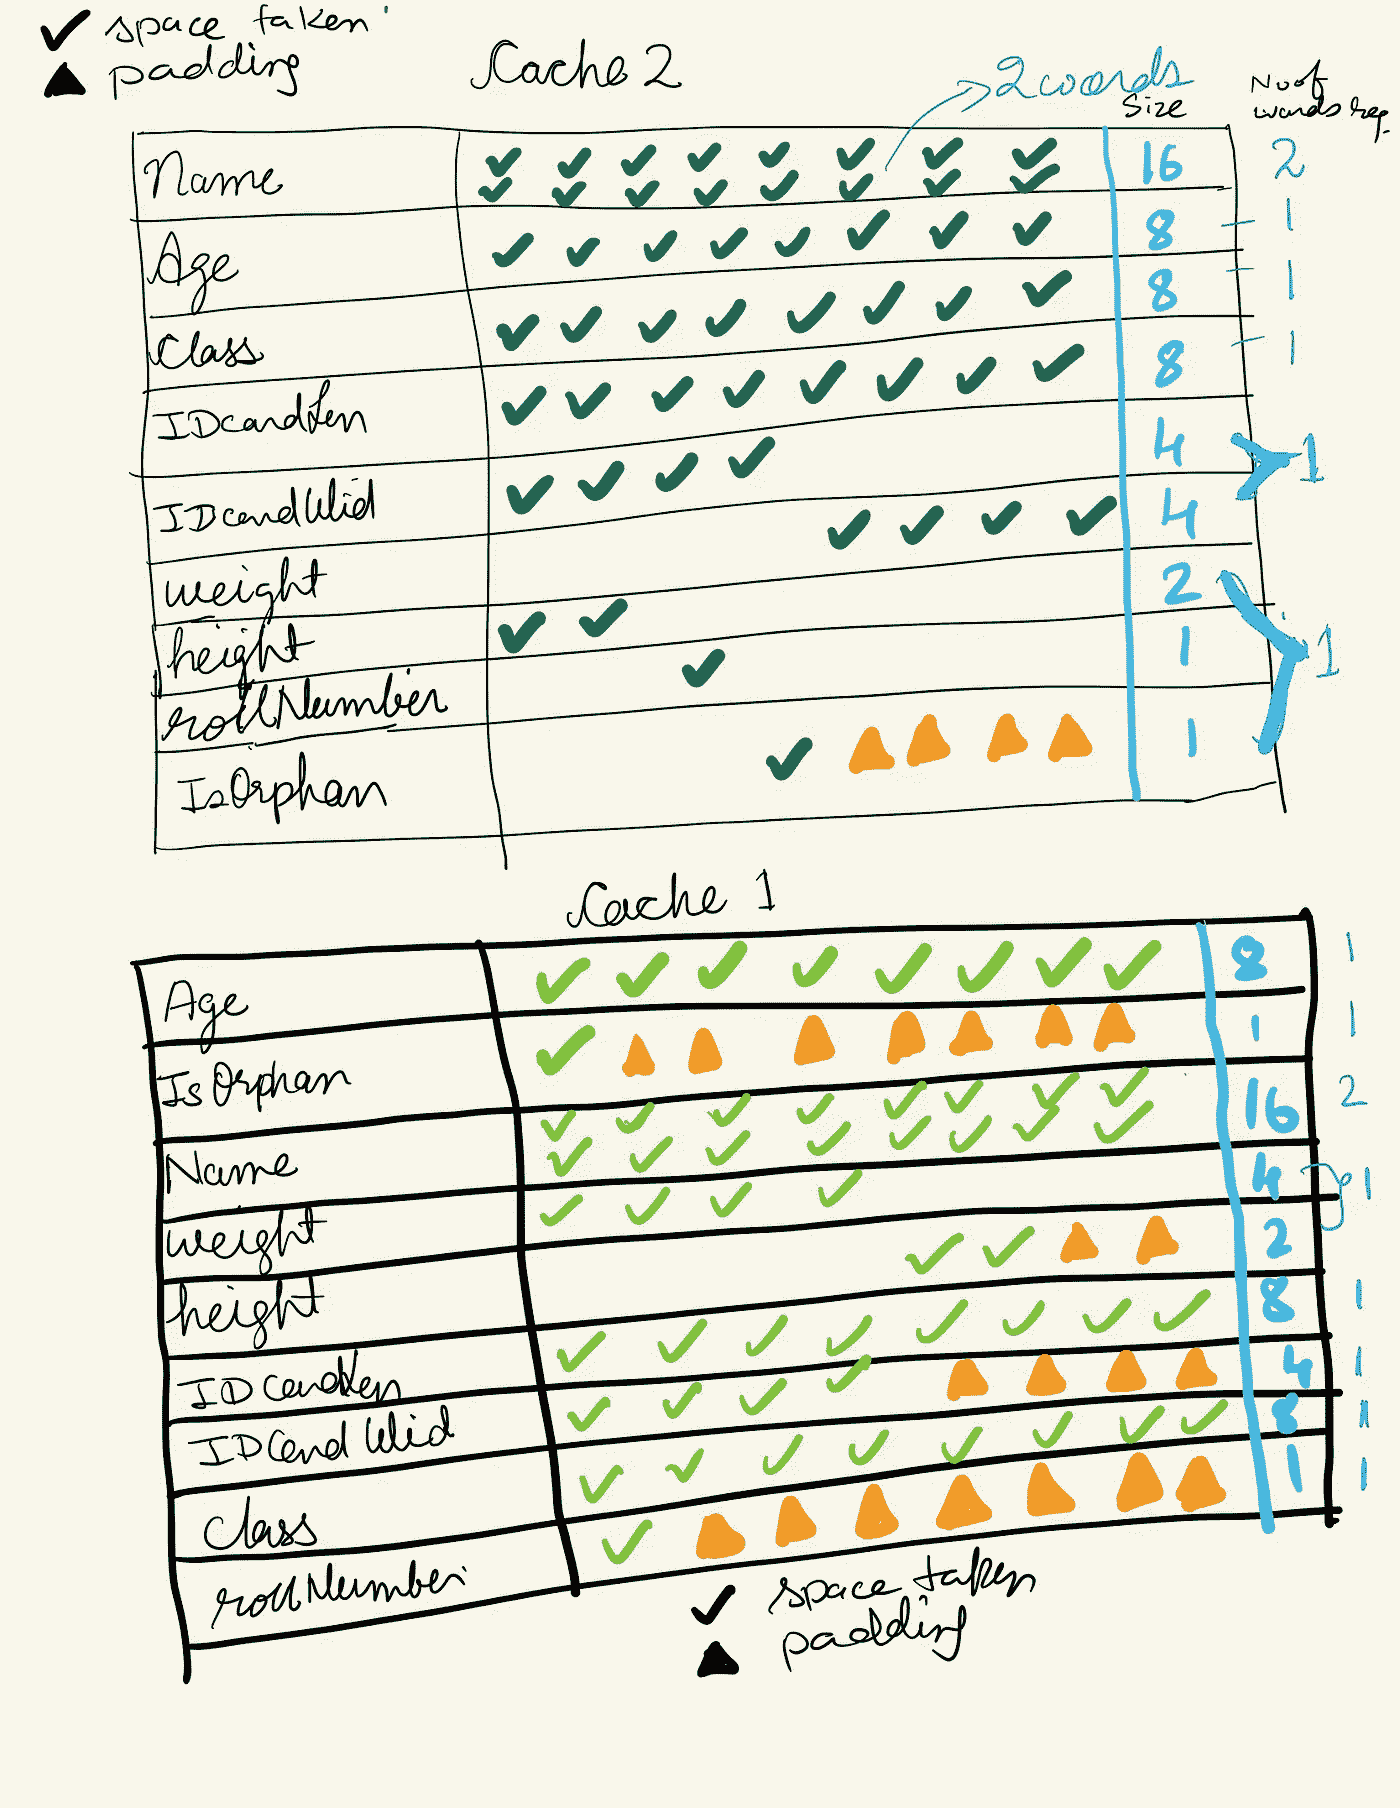 space taken
padding
Cache 2
2 words
Size
No of words req.
Name 16 2
Age 8 1
Class 8 1
IDcardLen 8 1
IDcardWid 4
weight 4
1
height 2
rollNumber 1
IsOrphan 1
1
Cache 1
Age 8 1
IsOrphan 1 1
Name 16 2
weight 4
height 2
1
IDCardLen 8 1
IDCardWid 4 1
Class 8 1
rollNumber 1 1
space taken
padding